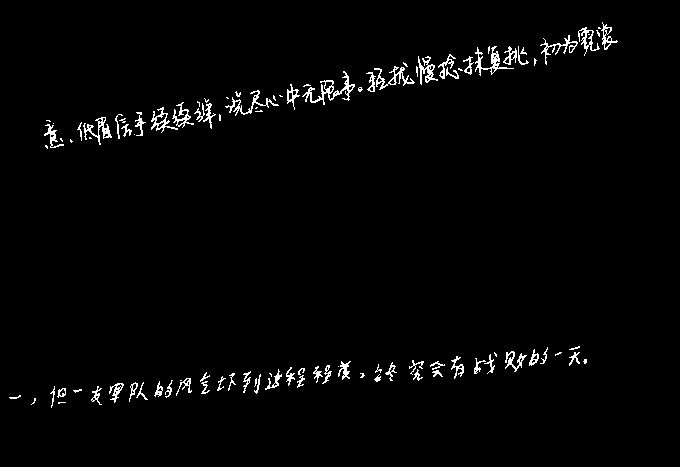 意。低眉信手续续弹，说尽心中无限事。轻拢慢捻抹复挑，初为霓裳
一，但一支军队的风气坏到这种程度，终究会有战败的一天。